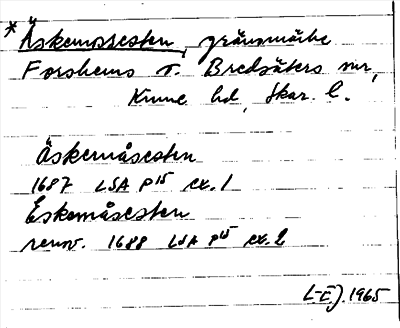 * Äskemossesten, gränsmärke
Forshems o. Bredsäters snr,
Kinne hd, Skar. l.
Äskemåsesten
1687 LSA P15 ex. 1
Eskemåsesten
renov. 1688 LSA P15 ex. 2
L-E.J. 1965